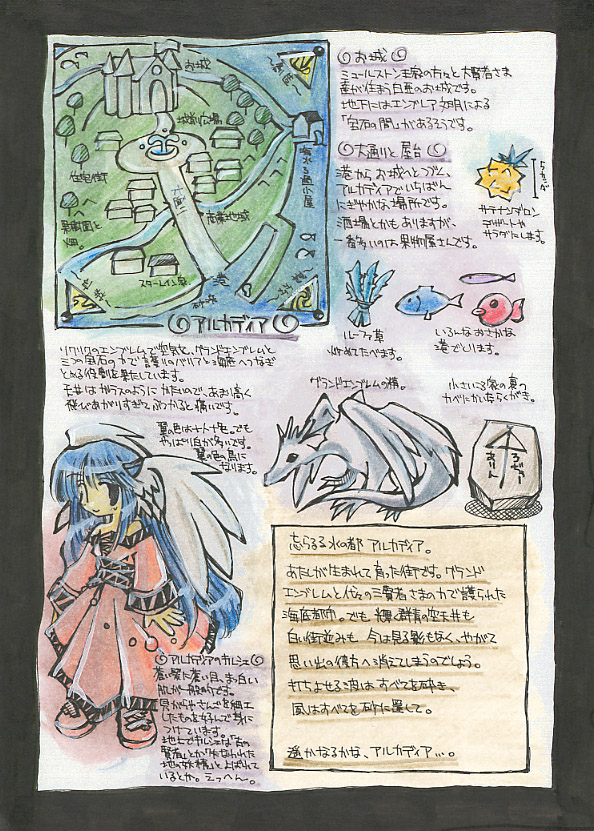 お城
ミュールストン王家の方々と大賢者さま
達が住まう白亜のお城です。
地下にはエンブレア文明による
「宝石の間」があるそうです。
大通りと屋台
港からお城へとつづく、
アルカディアでいちばん
にぎやかな場所です。
酒場とかもありますが、
一番多いのは果物屋さんです。
サテナンダロン
デザートや
サラダにします。
ルーフィ草
炒めてたべます。
いろんなおさかな
港でとります。
お城
城前広場
住宅街
果樹園と
畑。
大通り
商業地域
スターレイン家
港
アルカディア
ソクリクのエンブレムで空気と、グランドエンブレムと
三つの宝石の力で護りのバリアと海面へつなぎ
とめる役割を果たしています。
天井はガラスのようにかたいので、あまり高く
飛びあがりすぎてぶつかると痛いです。
翼の色は十人十色。でも
やっぱり白が多いです。
翼の色の鳥に
なります。
グランドエンブレムの精。
小さいころ家の裏の
カベにかいたらくがき。
アルカディアのキルシェ
蒼い髪に蒼い目、まっ白い
肌が一般的です。
貝がらやさんごを細工
したものを好んで身に
つけています。
忘らるる水の都 アルカディア。
あたしが生まれて育った街です。グランド
エンブレムと代々の三賢者さまの力で護られた
海底都市。でも、輝く群青の空天井も
白い街並みも、今は見る影もなく、やがて
思い出の彼方へ消えてしまうのでしょう。
打ちよせる波はすべてを砕き、
風はすべてを砂に還して。
遥かなるかな、アルカディア…。